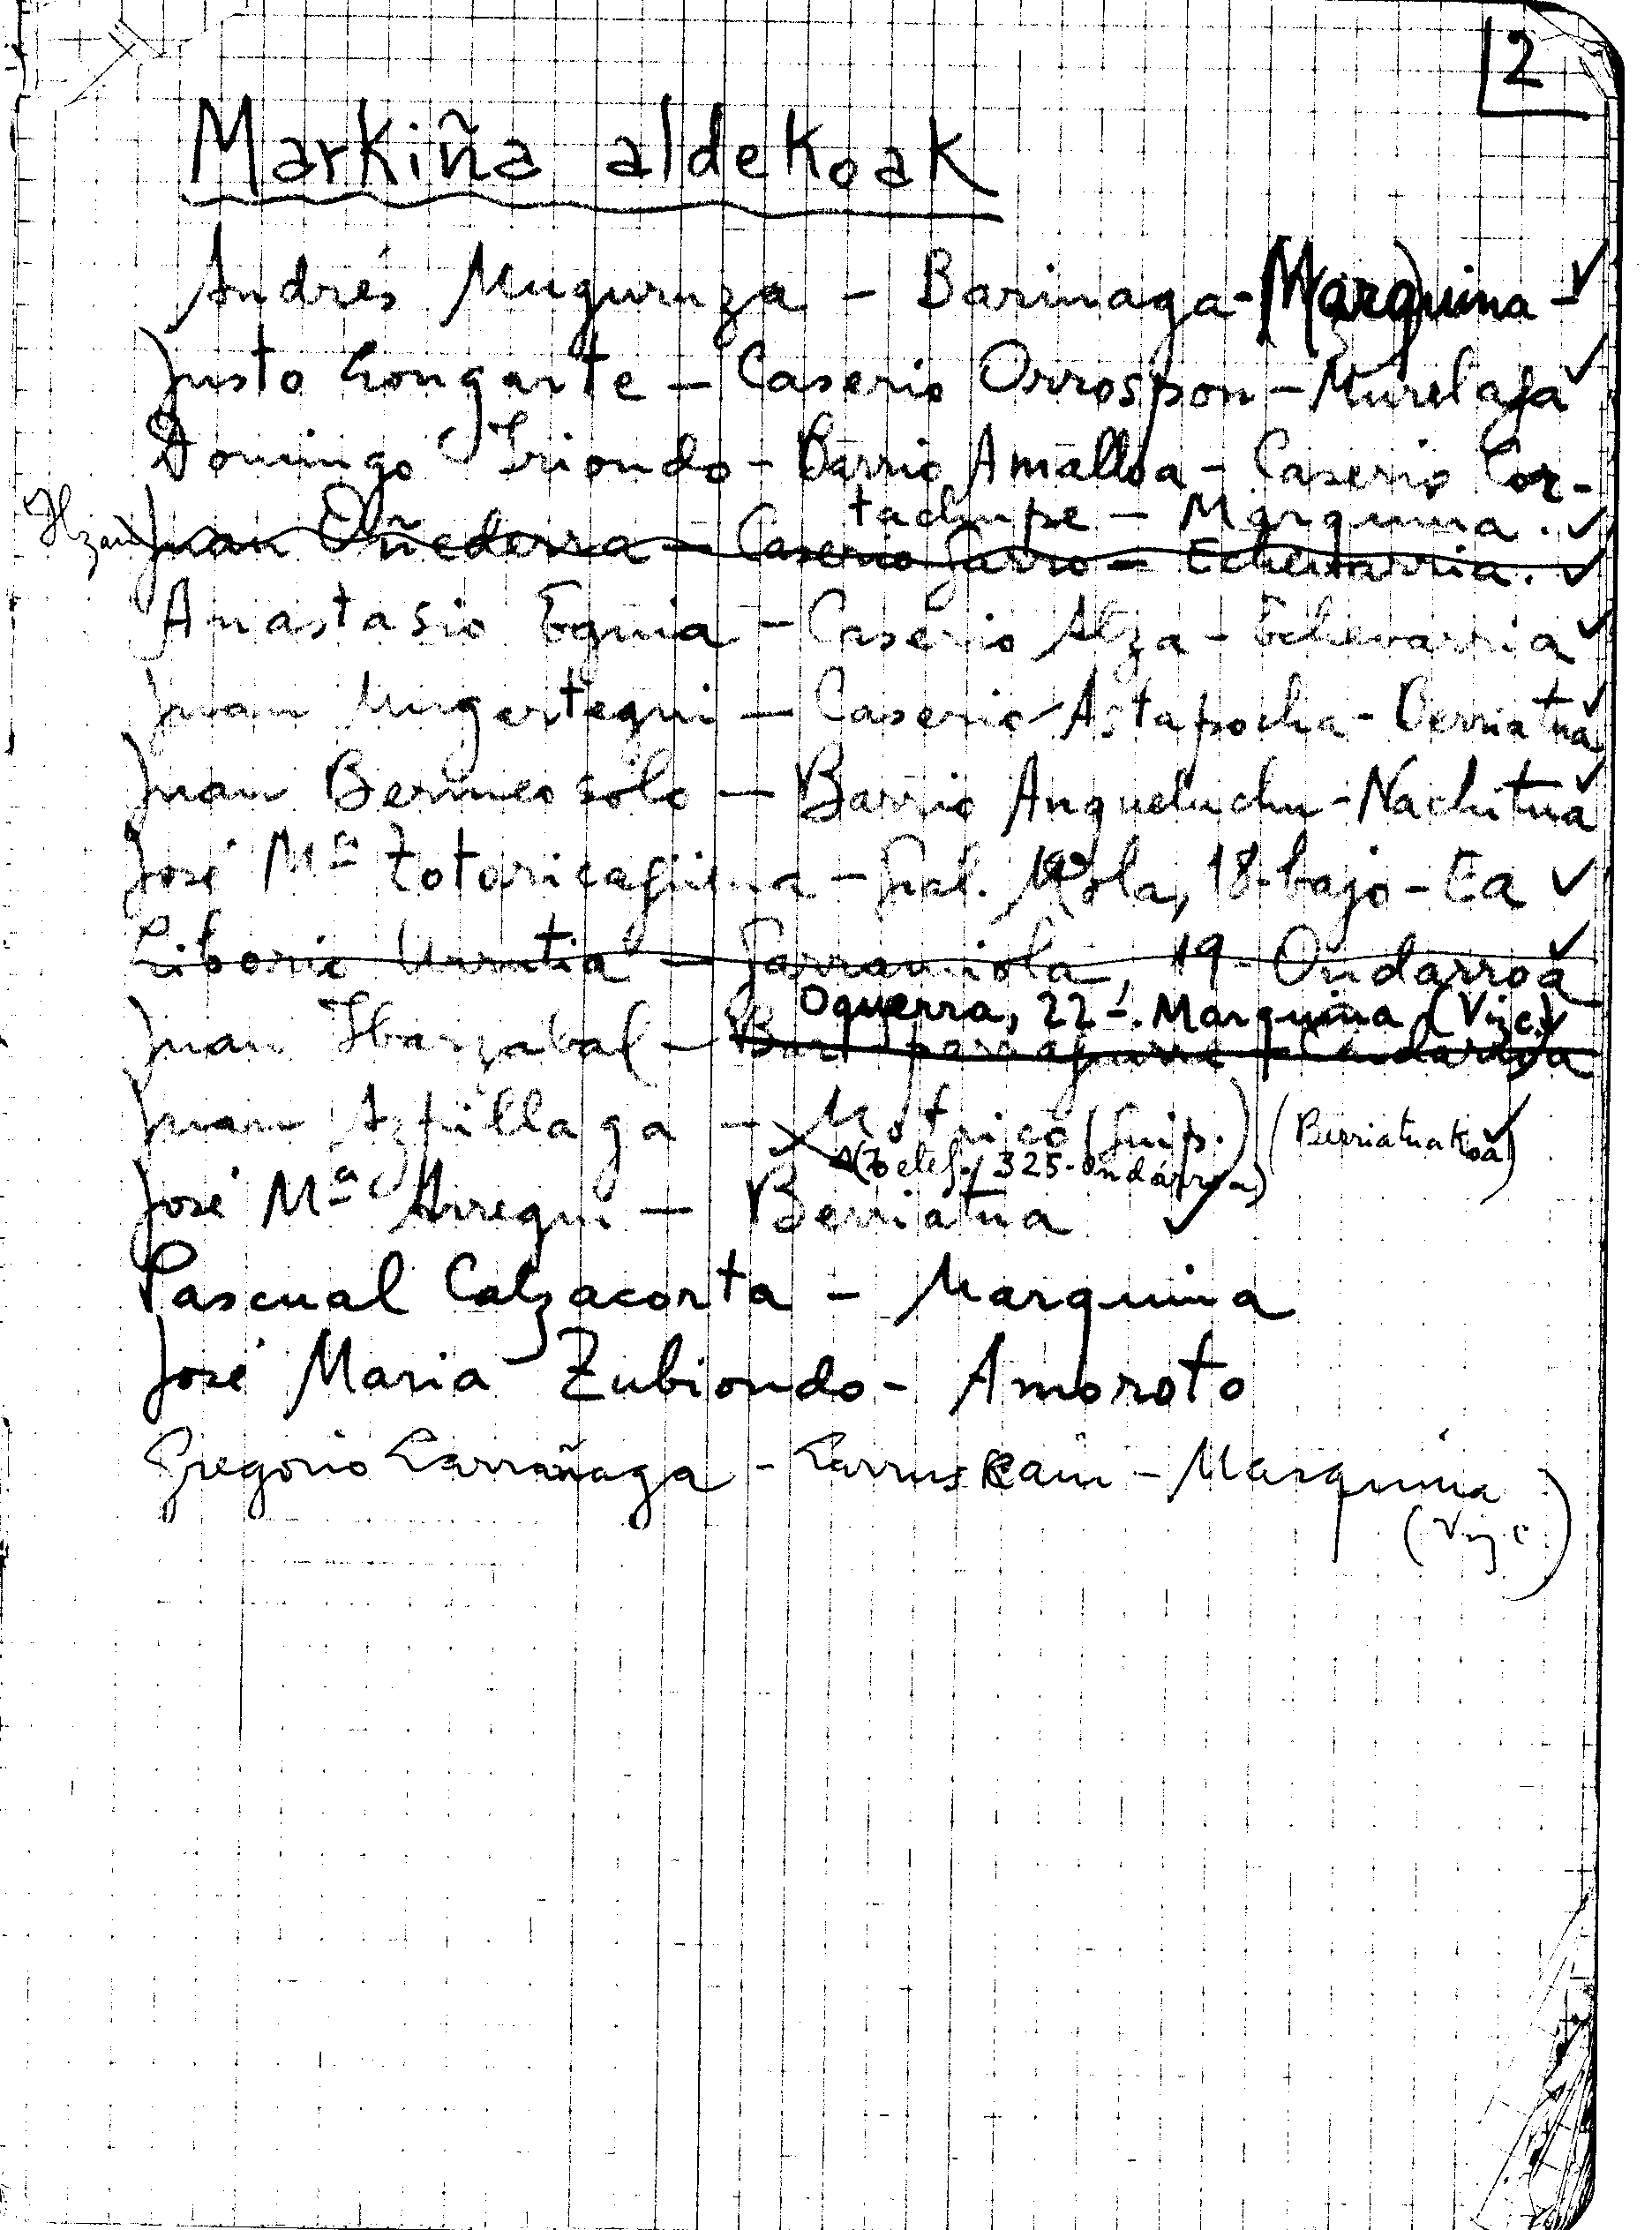 2
Markiña aldekoak
Andrés Muguruza - Barinaga - Marquina - ✓
Justo Gongarte - Caserio Orrospon - Murelaga ✓
Domingo Iriondo - Barrio Amalloa - Caserio Cor-
tachupe - Marquina. ✓
Juan Oñederra - Caserio Jarro - Echevarria. ✓
Anastasio Eguia - Caserio Alza - Echevarria ✓
Juan Mugertegui - Caserio Astapocha - Berriatua ✓
Juan Bermeosolo - Barrio Angueluchu - Nachitua ✓
José Mª Totoricagüena - Gral. Mola, 18-bajo - Ea ✓
Liborio Urrutia - Garramiola, 19 - Ondarroa ✓
Oguerra, 22 -. Marquina (Vizc.) ✓
Juan Ibarzabal -
Juan Azpillaga - Motrico (Guip.) (Berriatuakoa) ✓
(Telef. 325 - Ondárroa)
José Mª Arregui - Berriatua ✓
Pascual Calzacorta - Marquina
José Maria Zubiondo - Amoroto
Gregorio Larrañaga - Larruskain - Marquina
(Vizc.)